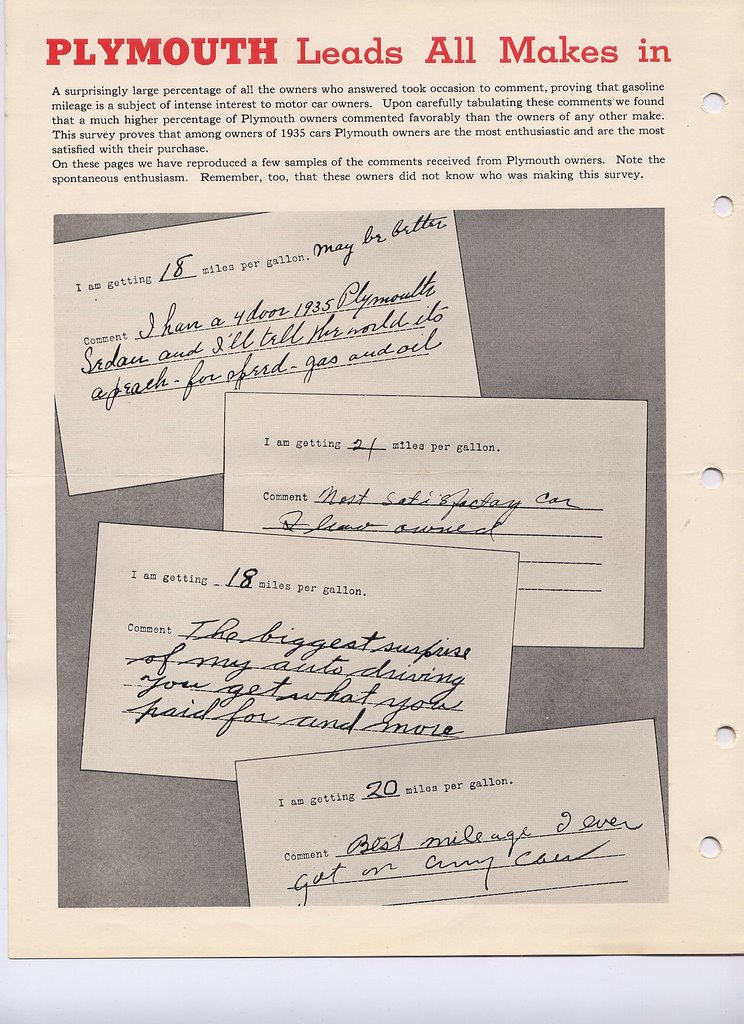 PLYMOUTH Leads All Makes in
A surprisingly large percentage of all the owners who answered took occasion to comment, proving that gasoline
mileage is a subject of intense interest to motor car owners. Upon carefully tabulating these comments we found
that a much higher percentage of Plymouth owners commented favorably than the owners of any other make.
This survey proves that among owners of 1935 cars Plymouth owners are the most enthusiastic and are the most
satisfied with their purchase.
On these pages we have reproduced a few samples of the comments received from Plymouth owners. Note the
spontaneous enthusiasm. Remember, too, that these owners did not know who was making this survey.
I am getting 18 miles per gallon. May be better
Comment I have a 4 door 1935 Plymouth
Sedan and I'll tell the world its
a peach - for speed - gas and oil
I am getting 21 miles per gallon.
Comment Most satisfactory car
I have owned
I am getting 18 miles per gallon.
Comment The biggest surprise
of my auto driving
you get what you
paid for and more
I am getting 20 miles per gallon.
Comment Best mileage I ever
got on any car